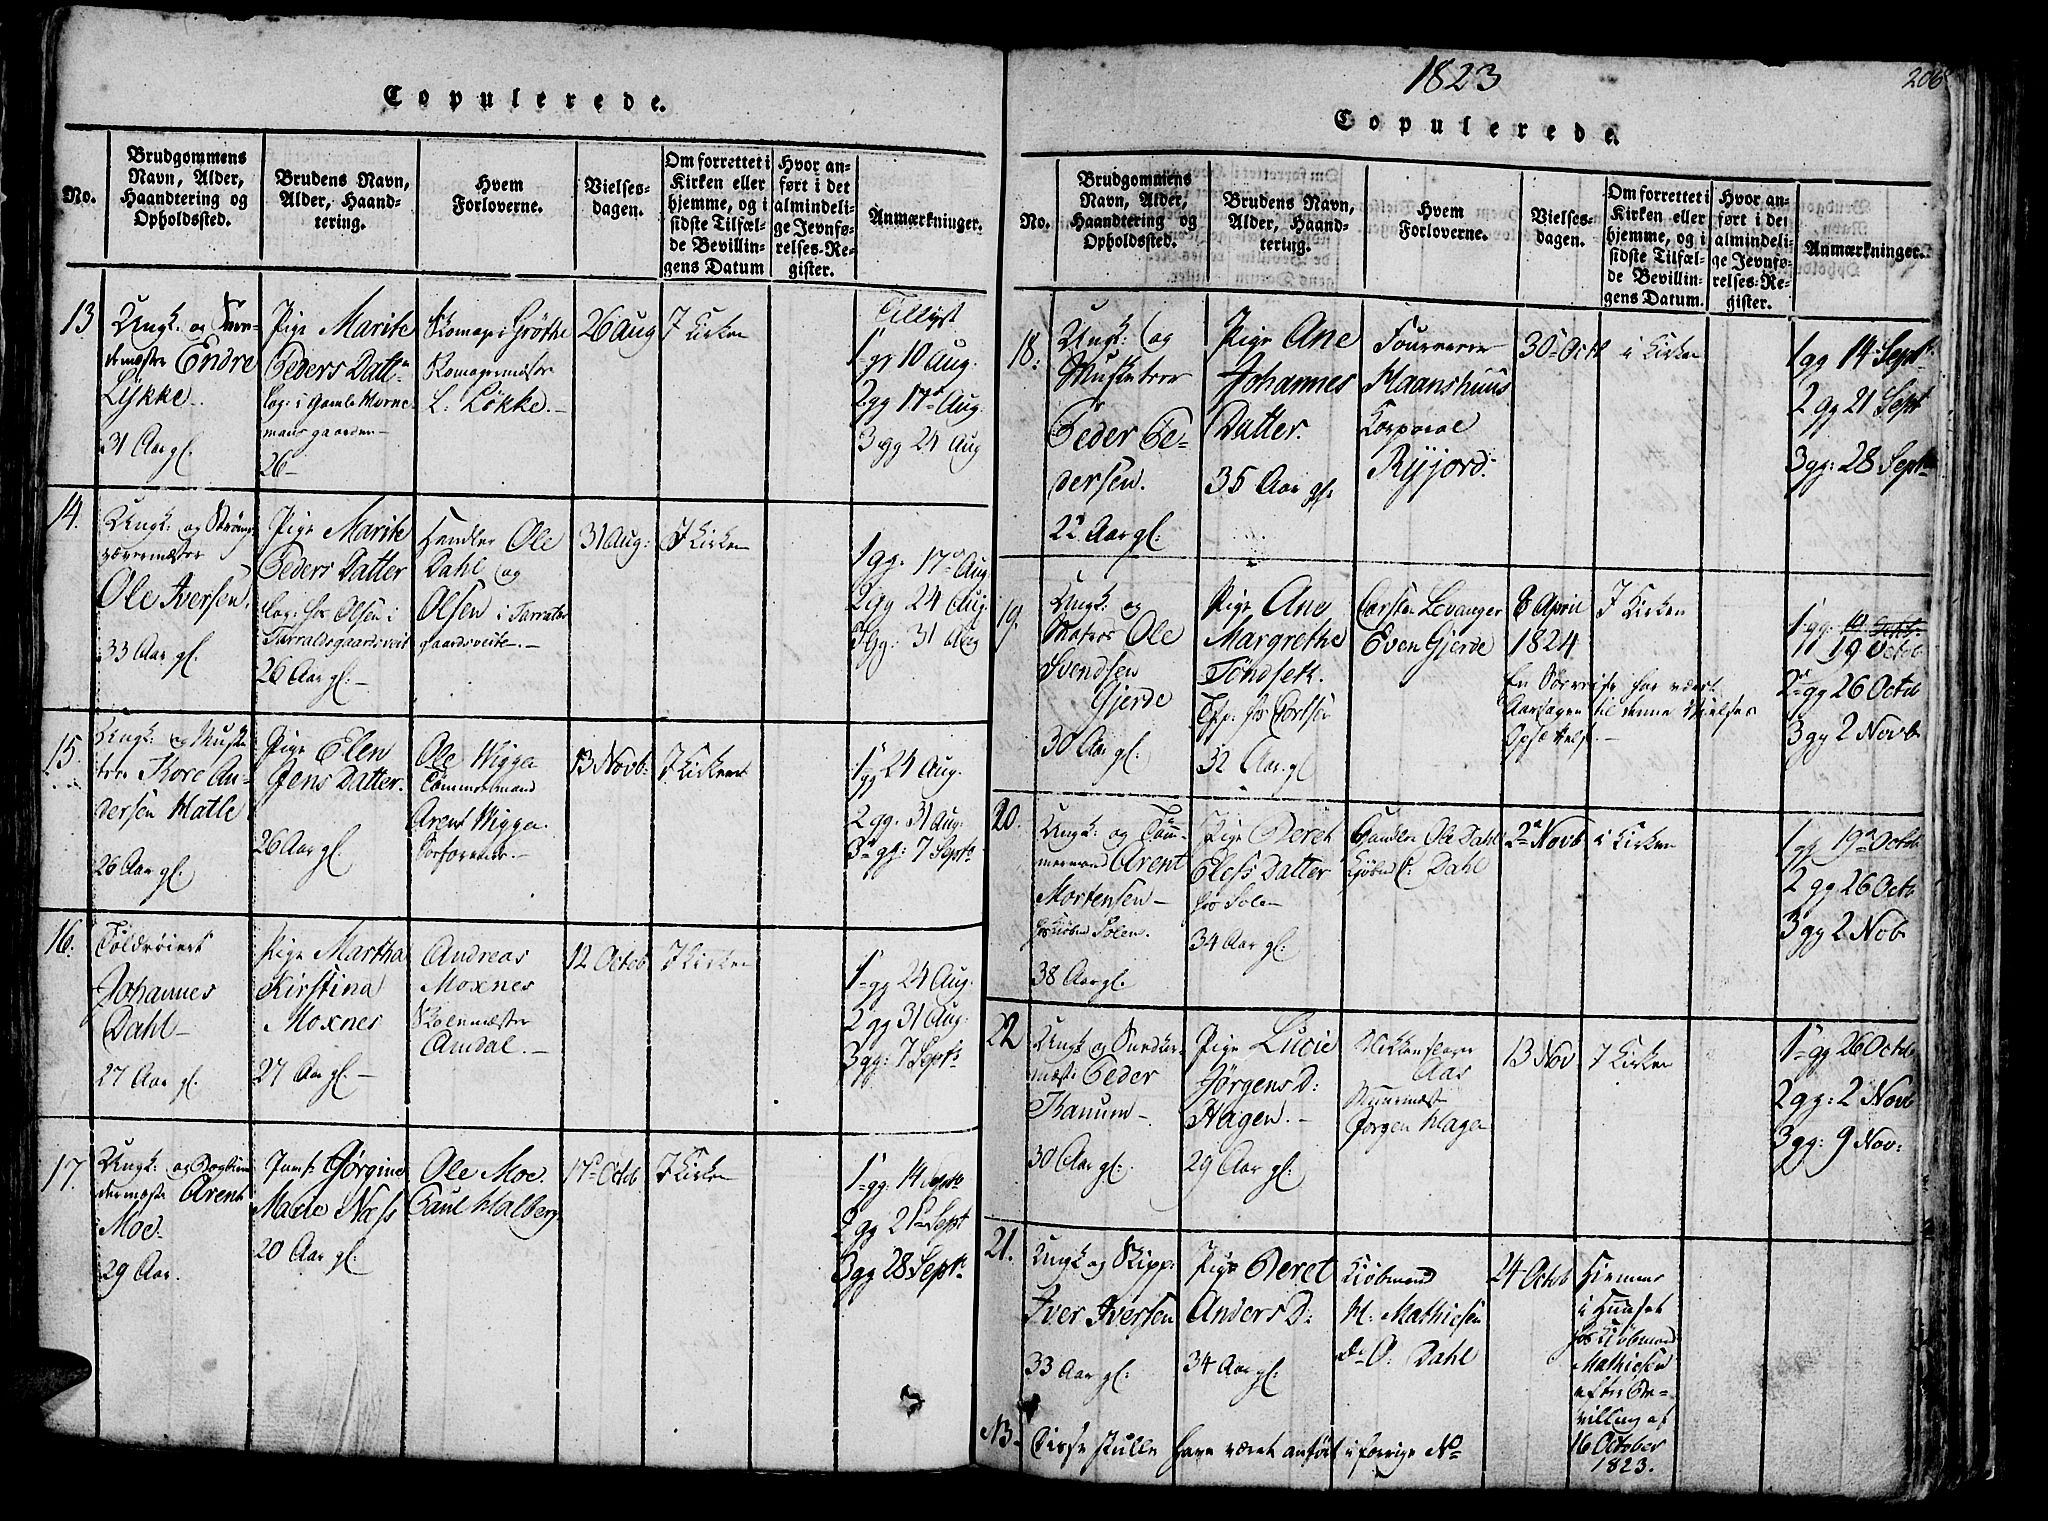 Copulerede.
No.
Brudgommens
Navn, Alder,
Haandtering og
Opholdssted.
Brudens Navn,
Alder, Haand-
tering.
Hvem
Forloverne.
Vielses-
dagen.
Om forrettet i
Kirken eller
hjemme, og i
sidste Tilfæl-
de Bevillin-
gens Datum
Hvor an-
ført i det
almindeli-
ge Jevnfø-
relses-Re-
gister.
Anmærkninger.
13
Ungk: og
Endre
Lykke.
31 Aar gl.
Pige Marite
Peders Datter
26
Grøthe
L. Løkke.
26 Aug
I Kirken
Tillyst
1 gg 10 Aug.
2 gg 17 Aug.
3 gg 24 Aug
14.
Ungk: og
Ole Iversen.
33 Aar gl.
Pige Marite
Peders Datter
log: hos Olsen i
26 Aar gl.
Handler Ole
Dahl og
Olsen i
31 Aug:
I Kirken
1 gg. 17 Aug
2 gg 24 Aug.
3 gg: 31 Aug
15.
Ungk: og Muske
teer Tore An-
dersen Hatle
26 Aar gl.
Pige Elen
Jens Datter.
26 Aar gl.
Ole Wigga
Tømmermand
Arent Wigga
13 Novb:
I Kirken
1 gg 24 Aug.
2 gg. 31 Aug:
3 gg: 7 Septb
16.
Johannes
Dahl
27 Aar gl.
Pige Martha
Kirstina
Moxnes
27 Aar gl.
Andreas
Moxnes
Skolemæster
Amdal.
12 Octob
I Kirken
1 gg 24 Aug.
2 gg 31 Aug:
3 gg: 7 Septb
17.
Ungk: og Bogbin
dermester Arent
Moe.
29 Aar.
Jomf: Jørgine
Marie Næss
20 Aar gl.
Ole Moe.
Paul Halberg
17 Octob.
I Kirken
1 gg. 14 Septb
2 gg 21 Sept
3 gg 28 Septb.
1823
206
Copulerede.
No.
Brudgommens
Navn, Alder,
Haandtering og
Opholdssted.
Brudens Navn,
Alder, Haand-
tering.
Hvem
Forloverne.
Vielses-
dagen.
Om forrettet i
Kirken eller
hjemme, og i
sidste Tilfæl-
de Bevillin-
gens Datum.
Hvor an-
ført i det
almindeli-
ge Jevnfø-
relses-Re-
gister.
Anmærkninger.
18.
Ungk: og
Musketeer
Peder Pe-
dersen.
22 Aar gl.
Pige Ane
Johannes
Datter.
35 Aar gl.
Fourerer
Haanshuus
Corporal
Ryjord.
30 Oct
i Kirken
1 gg 14 Septb.
2 gg 21 Sept
3 gg: 28 Septb
19.
Ungk: og
Matros Ole
Svendsen
Gjerde
30 Aar gl.
Pige Ane
Margrethe
Tøndseth.
32 Aar gl
Carsten Levanger
Even Gjerde
8 April
1824.
En Søereise har været
Aarsagen til denne Vielses
Opsættelse.
I Kirken
1 gg:
19 Octob
2 gg 26 Octob
3 gg 2 Novb
20.
Ungk: og Tøm-
mermand Arent
Mortensen
Solem.
38 Aar gl.
Pige Beret
Olufs Datter
hos Solem
34 Aar gl:
Handler Ole Dahl
Kjøbm. Dahl
2 Novb
i Kirken
1 gg 19 Octob
2 gg 26 Octo
3 gg 2 Nob
22
Ungk og Snedker
mester Peder
Thanum
30 Aar gl:
Pige Lucie
Jørgens D:
Hagen.
29 Aar gl:
Aas
Jørgen Hage
13 Nov
I Kirken
1 gg 26 Octob
2 gg: 2 Novb
3 gg: 9 Nov:
21.
Ungk og Skipp:
Iver Iversen
33 Aar gl:
Pige Beret
Anders D:
34 Aar gl:
Kiøbmand
H. Mathiesen
do O. Dahl
24 Octob
Hiemme
i Huuset
hos Kiøbmand
Mathiesen
efter Be-
villing af
16 October
1823.
NB. Disse skulle have været anført i forrige No